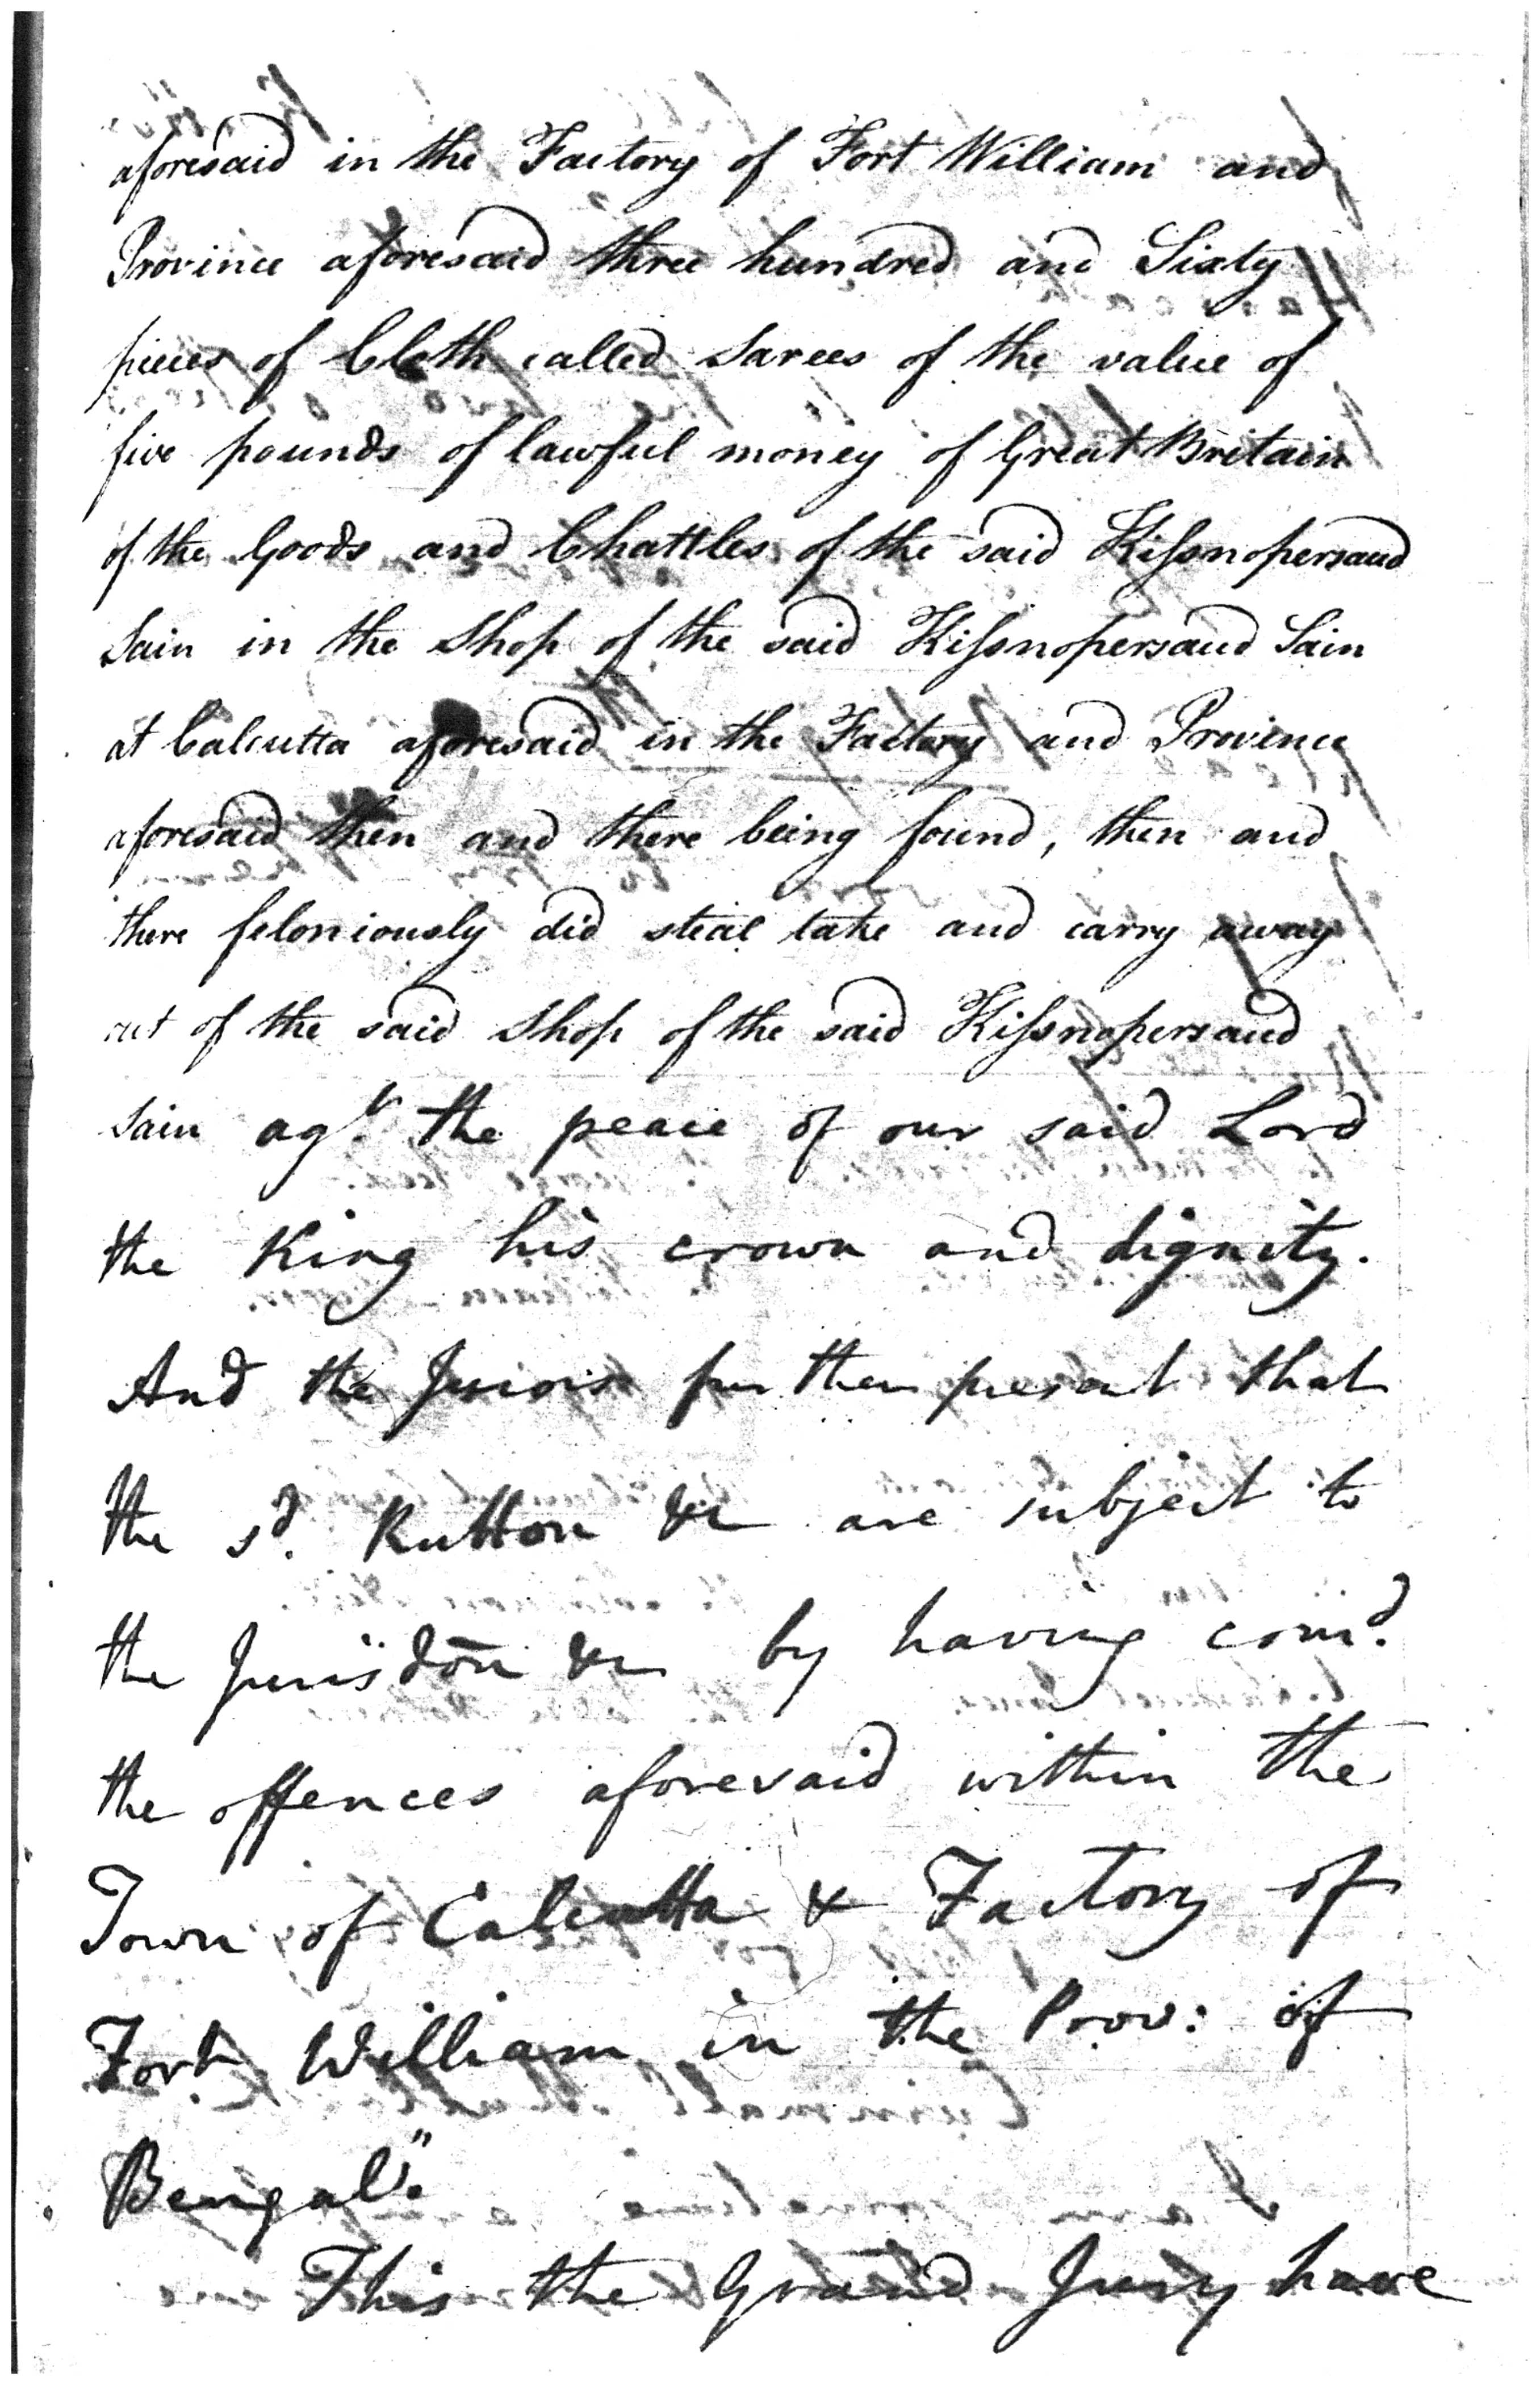 aforesaid in the Factory of Fort William and
Province aforesaid three hundred and Sixty
pieces of Cloth called Sarees of the value of
five pounds of lawful money of Great Britain
of the Goods and Chattles of the said Kissnopersaud
Sain in the Shop of the said Kissnopersaud Sain
at Calcutta aforesaid in the Factory and Province
aforesaid then and there being found, then and
there feloniously did steal take and carry away
out of the said Shop of the said Kissnopersaud
Sain agt. the peace of our said Lord
the King his crown and dignity.
And the Jurors further present that
the sd. Rutton &c are subject to
the Jurisdon &c by having comd.
the offences aforesaid within the
Town of Calcutta & Factory of
Fort William in the Prov: of
Bengal."
This the Grand Jury have